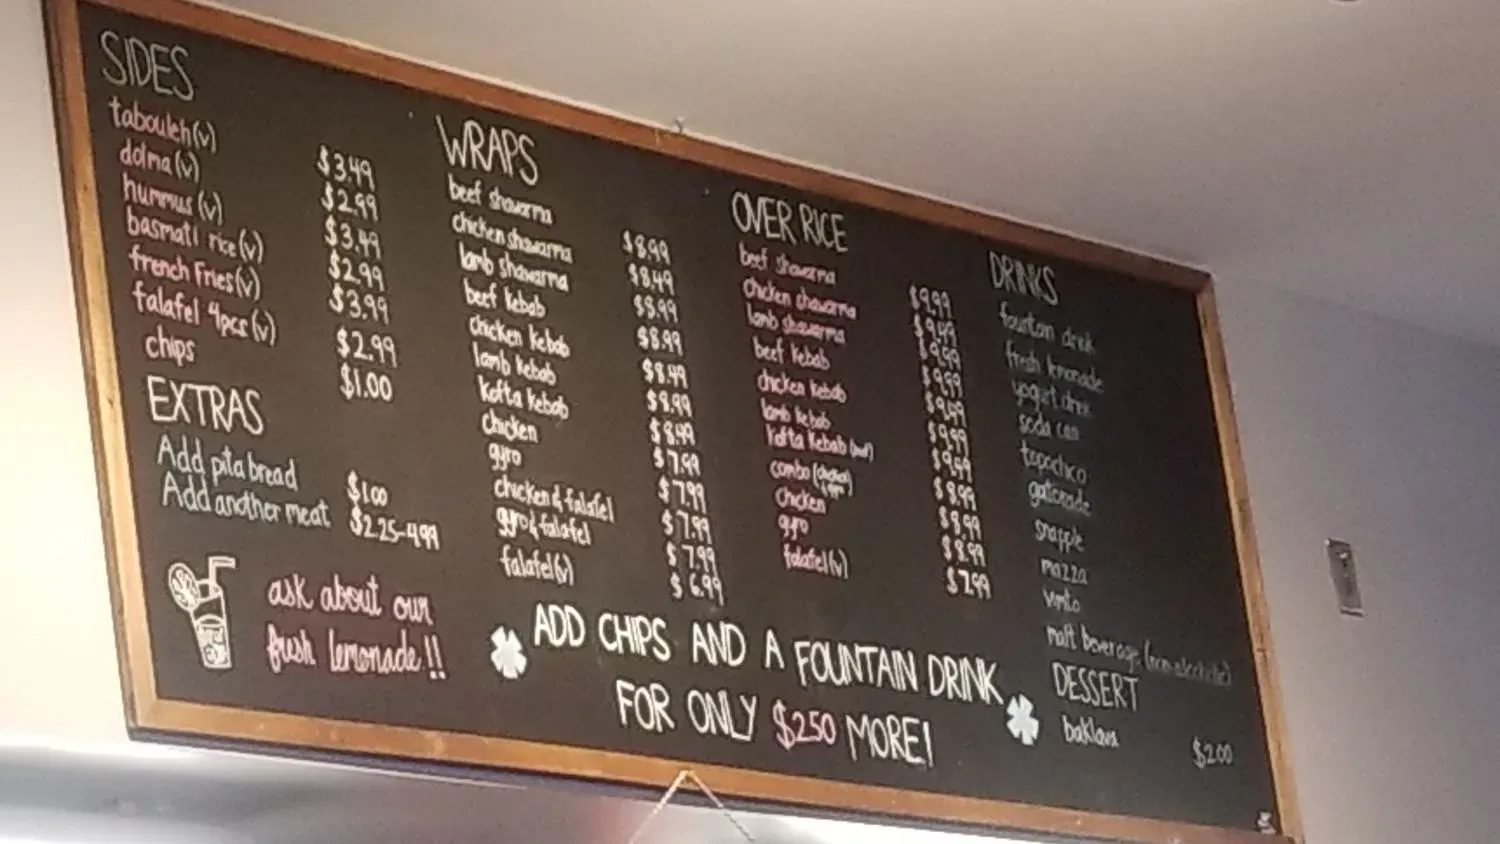 SIDES
tabouleh (v) $3.49
dolma (v) $2.99
hummus (v) $3.49
basmati rice (v) $2.99
french fries (v) $3.99
falafel 4pcs (v) $2.99
chips $1.00
EXTRAS
Add pita bread $1.00
Add another meat $2.25-4.99
ask about our
fresh lemonade!!
WRAPS
beef shawarma $8.99
chicken shawarma $8.49
lamb shawarma $8.99
beef kebab $8.99
chicken kebab $8.49
lamb kebab $8.99
kofta kebab $8.49
chicken $7.99
gyro $7.99
chicken & falafel $7.99
gyro & falafel $7.99
falafel (v) $6.99
OVER RICE
beef shawarma $9.99
chicken shawarma $9.49
lamb shawarma $9.99
beef kebab $9.99
chicken kebab $9.49
lamb kebab $9.99
kofta kebab (beef) $9.49
combo (chicken $8.99
chicken $8.99
gyro $8.99
falafel (v) $7.99
DRINKS
fountain drink
fresh lemonade
yogurt drink
soda can
topochico
gatorade
snapple
mazza
vimto
malt beverage (non-alcoholic)
DESSERT
baklava $2.00
ADD CHIPS AND A FOUNTAIN DRINK
FOR ONLY $2.50 MORE!